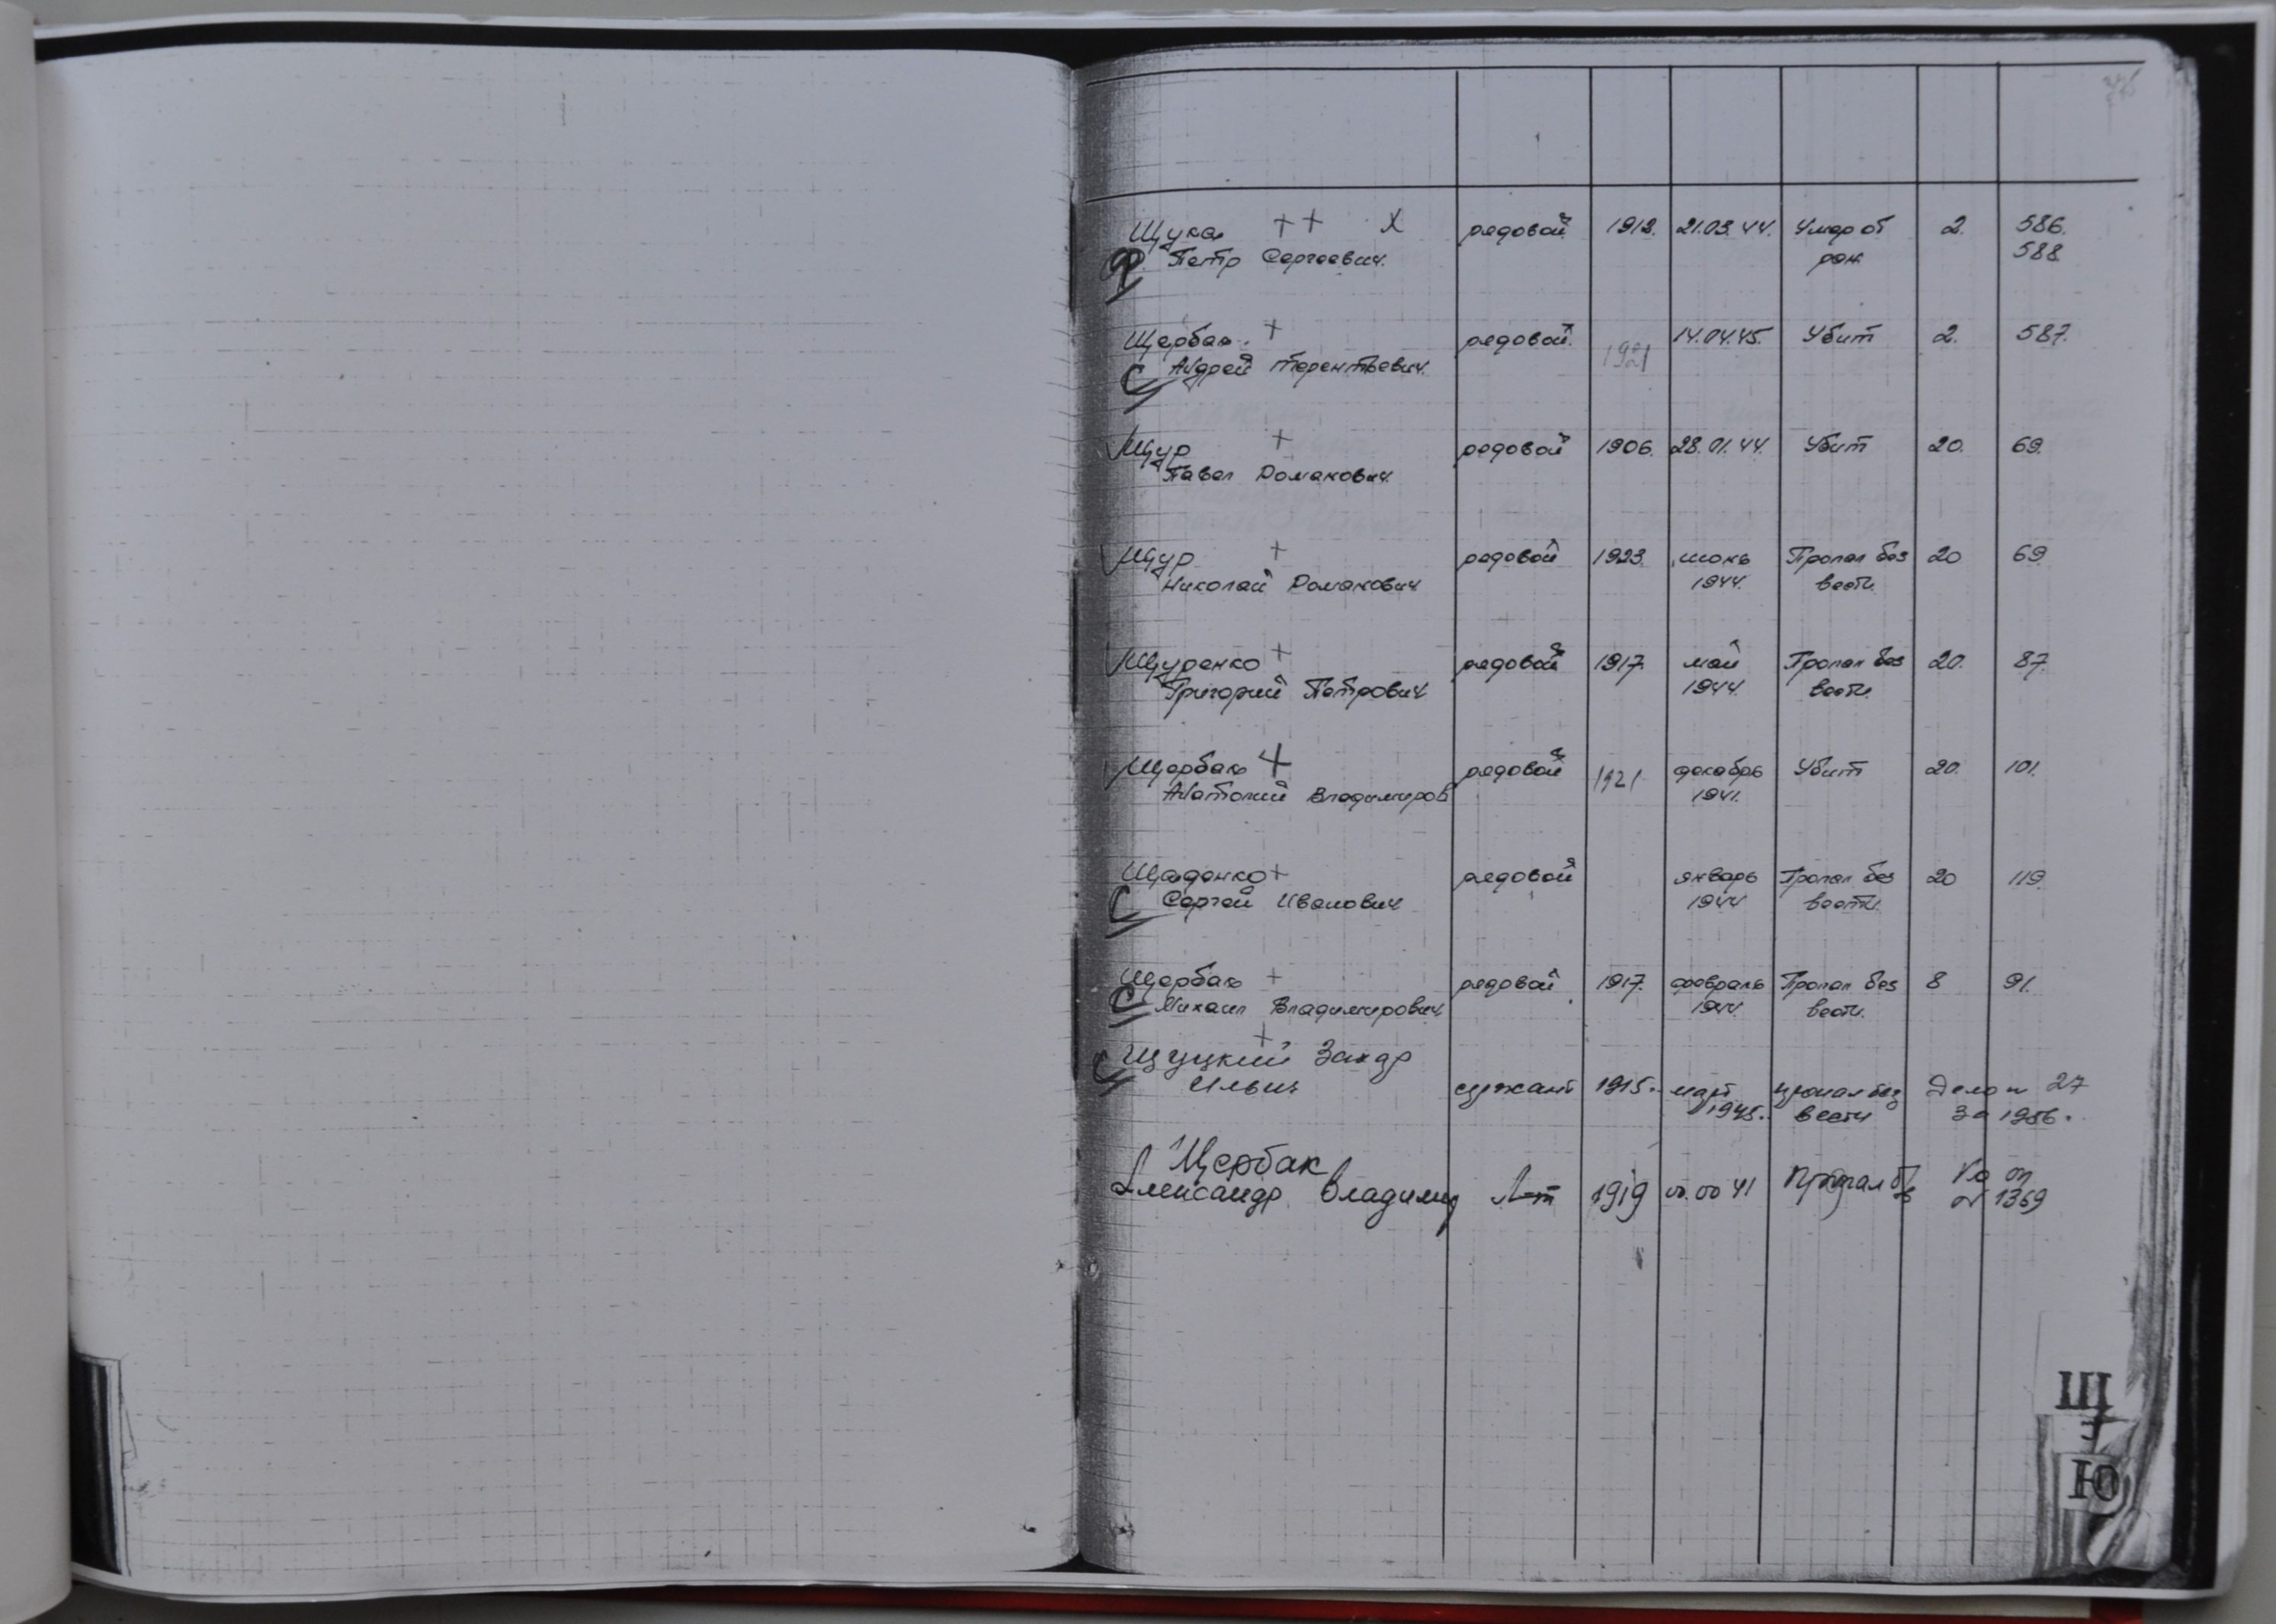 Щука ++ X рядовой 1912. 21.03.44. Умер от 2. 586.
Ф Петр Сергеевич. ран 588.
Щербак. + рядовой. 1921 14.04.45. Убит 2. 587.
С Андрей Терентьевич.
Щур + рядовой 1906. 28.01.44. Убит 20. 69.
Павел Романович.
Щур + рядовой 1923. июнь Пропал без 20 69
Николай Романович. 1944. вести.
Щуренко + рядовой 1917. май Пропал без 20. 87.
Григорий Петрович 1944. вести.
Щербак + рядовой 1921 декабрь Убит 20. 101.
Анатолий Владимиров 1941.
Щаденко + рядовой январь Пропал без 20 119.
С Сергей Иванович 1944 вести.
Щербак + рядовой 1917. февраль Пропал без 8 91.
С Михаил Владимирович. 1944. вести.
+
С Щуцкий Захар
Ильич сержант 1915. март пропал без Дело н 27
1945. вести за 1956.
Щербак
Александр Владимир Л-т 1919 00.00 41 Пропал б/в
№ 1369
Щ
Э
Ю